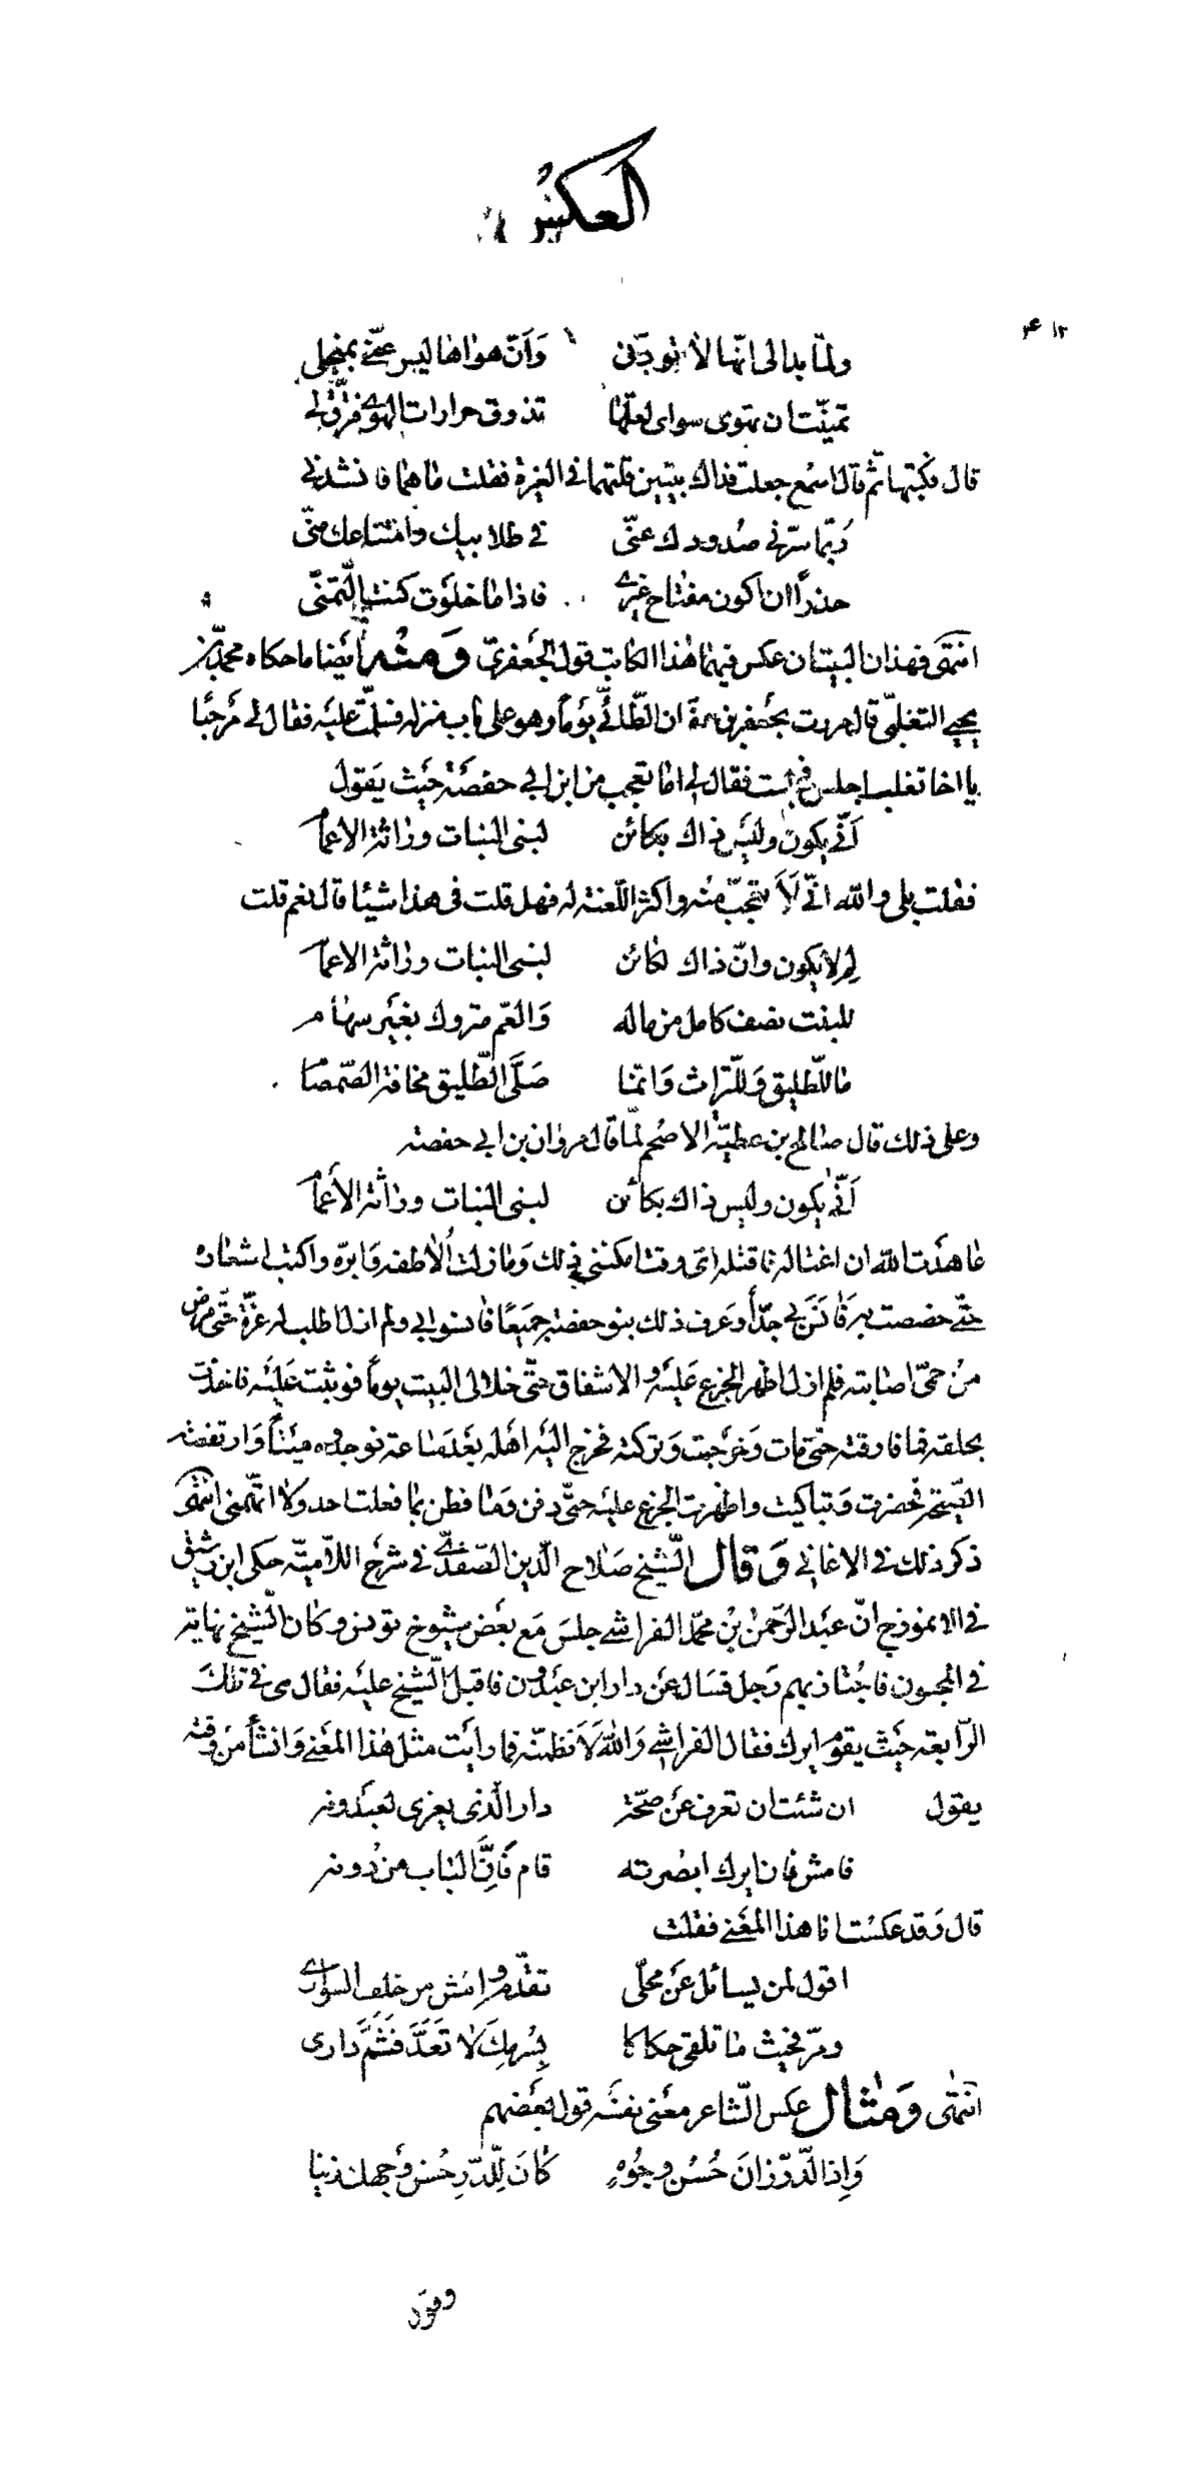 العكس
٤١٢
ولمّا بدا لي انّها لا تودّني وَأنّ هواها ليس عنّي بمنجلي
تمنّيت ان تهوى سواى لعلّها تذوق حرارات الهوى فترقّ لي
قال فكتبتها ثمّ قال اسمع جعلت فداك بيتين قلتهما في الغيرة فقلت ما هما فانشدني
رُبّما سرّني صُدودك عنّي في طلابيك وامتناعك منّي
حذراً ان اكون مفتاح غيري فاذا ما خلوت كنت التّمنّي
انتهى فهذان البيتان عكس فيهما هذا الكاتب قول الجعفريّ وَمثله أيضا ما حكاه محمّد بن
يحيى التغلبيّ قال مررت بجعفر بن عفّان الطّائيّ يوماً وهو على باب منزله فسلّمت عليه فقال لي مَرحَبًا
يا اخا تغلب اجلس فجلست فقال لي اما تعجب من ابن ابي حفصَة حَيث يَقول
أنّى يكون ولَيس ذاك بكائن لبنى البنات وراثة الاعمام
فقلت بلى والله انّي لَاَ تعجّب منه واكثر اللّعنة له فهل قلت في هذا شيئا قال نعم قلت
لِم لا يكون وانّ ذاك لكائن لبنى البنات وراثة الاعمام
للبنت نصف كامل من ماله وَالعَمّ متروك بغَير سهام
ما للّطليق وَللّتراث وَانما صَلَّى الطّليق مخافة الصّمصام
وعلى ذلك قال صالح بن عطيّة الاضجم لمّا قال مروان بن ابي حفصة
أنّى يكون وليس ذاك بكائن لبنى البنات وراثة الأعمام
عاهدت الله ان اغتاله فاقتله اىّ وقت امكننى ذلك وَما زلت ألاطفه وَابرّه واكتب اشعاره
حتّى خصصت به فَانَس بي جدّاً وعَرف ذلك بنو حفصة جَميعًا فانسوا بي ولم ازل اطلب له غرّة حتّى مرض
من حمّى اصابته فلم ازل اظهر الجزع عَليه والاشفاق حتّى خلا لى البيت يوماً فوثبت عَليه فاخذت
بحلقه فما فارقته حتى مات وَخرجت وَتركته فخرج اليه اهله بعد ساعة فوجدوه ميّتاً وَارتفعت
الصّيحة فحضرت وَتباكيت واظهرت الجزع عليه حتّى دفن وَما فطن بما فعلت احد وَلا اتّهمنى انتهى
ذكر ذلك في الاغاني وَقال الشّيخ صَلاح الّدين الصّفديّ في شَرح اللاّميّة حكى ابن رشيق
في الانموذج انّ عبد الرّحمن بْن محمّد الفراسي جلسَ مَع بعَض شيوخ تونس وكان الشّيخ نهاية
في المجون فاجتاز بهم رَجل فسَاله عَن دار ابن عبدون فاقبل الشّيخ عليه فقال هى في تلكَ
الرّابعة حَيث يقوم ايرك فقال الفراسي وَالله لَاَنظمنّه فما رأيت مثل هذا المعَنى وَانشأ من وقته
يقول ان شئت ان تعرف عَن صحّة دار الّذى يعزى لعبدونه
فامش فان ايرك ابصرته قام فَانَّ الباب من دونه
قال وَقد عكست انا هذا المعَنى فقلت
اقول لمن يسائل عَن محلّي تقدّم وامش من خلف السوارى
ومرّ فحيث ما تلقى حكاكا بسُرمِكَ لا تعَدَّ فَثَمَّ دارى
انتهى وَمثال عكس الشّاعر معَنى نفسه قول بعَضهم
وَإذا الدّرّ زانَ حُسْن وجُوهٍ كانَ لِلدّرِ حُسن وَجهك زينا